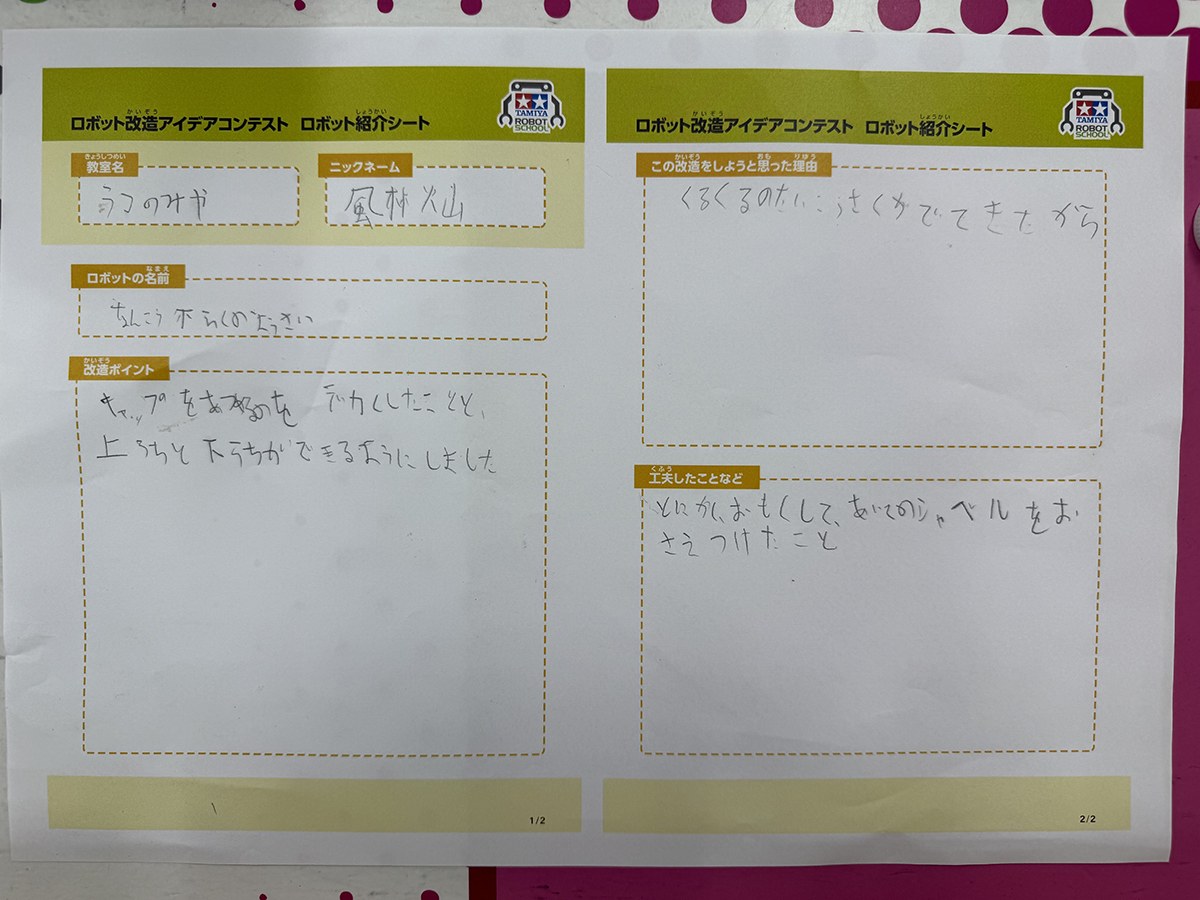 ロボット改造アイデアコンテスト ロボット紹介シート
TAMIYA
ROBOT
SCHOOL
教室名
うつのみや
ニックネーム
風林火山
ロボットの名前
なんこうふらくのようさい
改造ポイント
キャップをあつめるのをデカくしたことと、
上うちと下うちができるようにしました
1/2
ロボット改造アイデアコンテスト ロボット紹介シート
TAMIYA
ROBOT
SCHOOL
この改造をしようと思った理由
くるくるのたいこうさくがでてきたから
工夫したことなど
とにかく、おもくして、あいてのシャベルをお
さえつけたこと
2/2